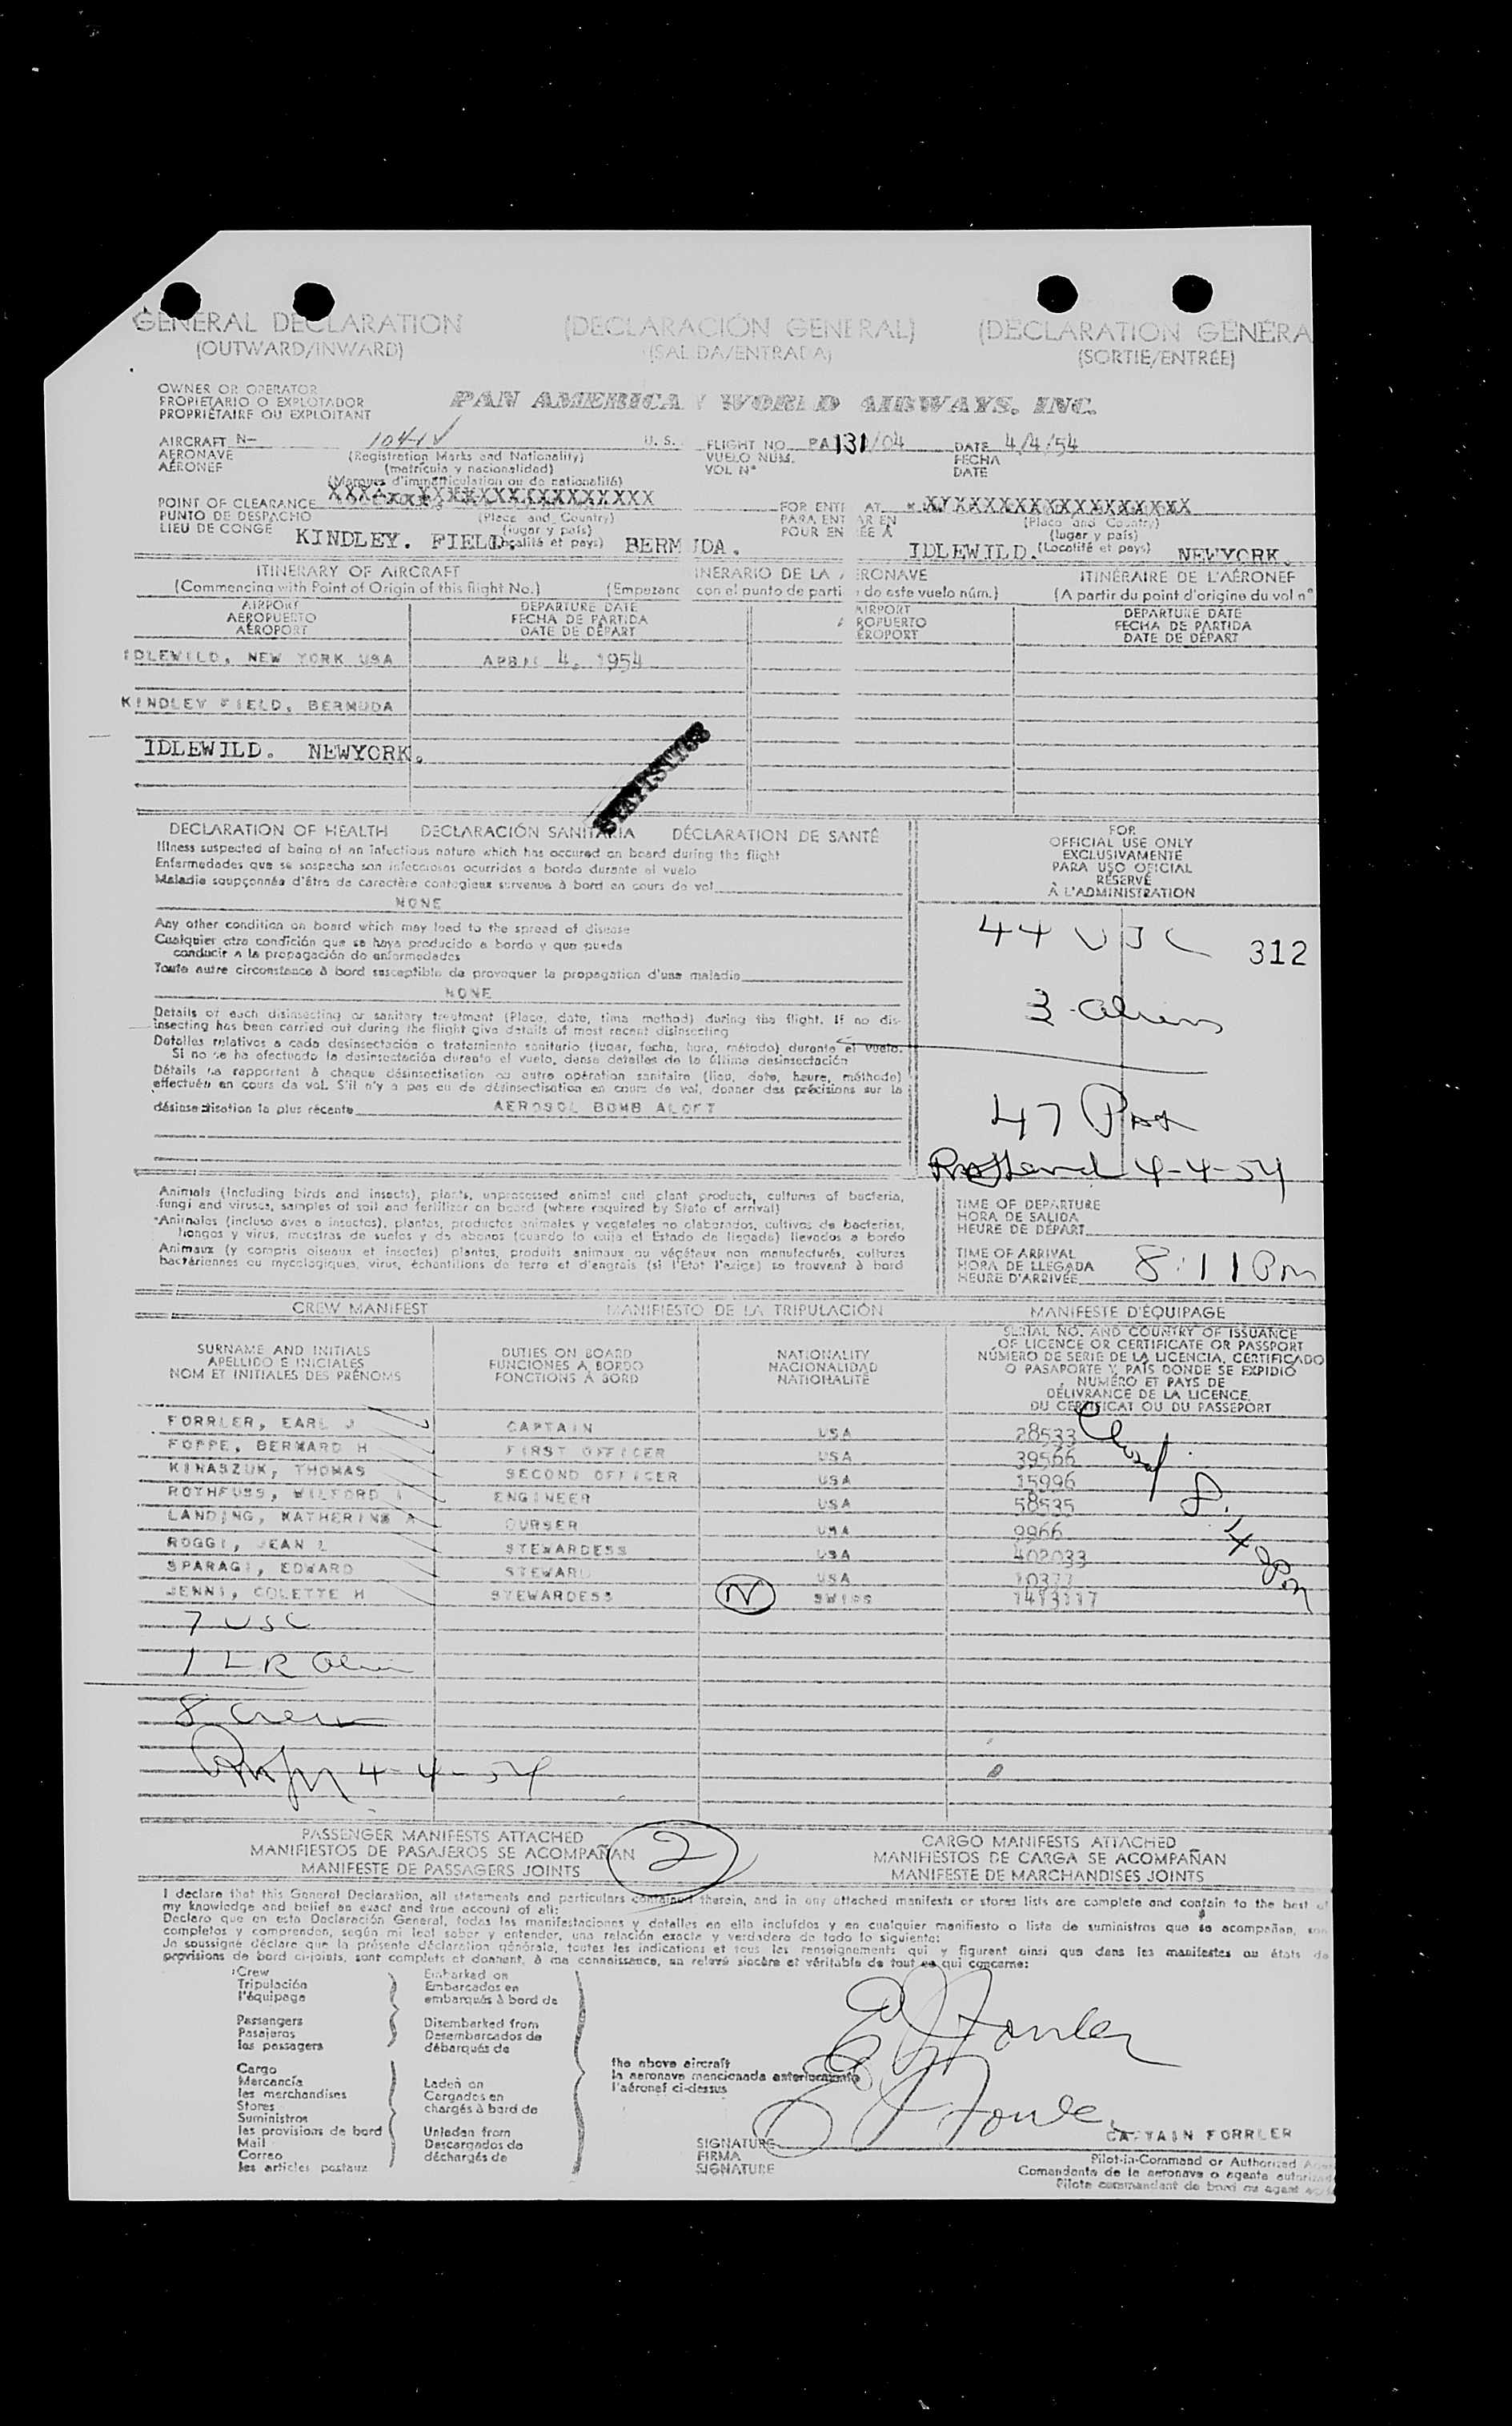 GENERAL DECLARATION (DECLARACIÓN GENERAL) (DÉCLARATION GÉNÉRA
(OUTWARD/INWARD) (SALIDA/ENTRADA) (SORTIE/ENTRÉE)
OWNER OR OPERATOR
PROPIETARIO O EXPLOTADOR
PROPRIÉTAIRE OU EXPLOITANT
PAN AMERICA WORLD AIRWAYS, INC.
AIRCRAFT N- 1041V U. S. FLIGHT NO. PA 131/04 DATE 4/4/54
AERONAVE (Registration Marks and Nationality) VUELO NUM. FECHA
AÉRONEF (matrícula y nacionalidad) VOL Nº DATE
(Marques d'immatriculation ou de nationalité)
POINT OF CLEARANCE XXXXXXXXXXXXXXXXXXXXX FOR ENT AT XXXXXXXXXXXXXXXXXXX
PUNTO DE DESPACHO (Place and Country) PARA ENT AR EN (Place and Country)
LIEU DE CONGÉ (lugar y país) POUR EN ÉE À (lugar y país)
KINDLEY. FIELD. (Localité et pays) BERM UDA. IDLEWILD. (Localité et pays) NEWYORK.
ITINERARY OF AIRCRAFT INERARIO DE LA AERONAVE ITINÉRAIRE DE L'AÉRONEF
(Commencing with Point of Origin of this flight No.) (Empezanc con el punto de parti de este vuelo núm.) (A partir du point d'origine du vol nº
AIRPORT DEPARTURE DATE AIRPORT DEPARTURE DATE
AEROPUERTO FECHA DE PARTIDA A ROPUERTO FECHA DE PARTIDA
AÉROPORT DATE DE DÉPART ÉROPORT DATE DE DÉPART
IDLEWILD, NEW YORK USA APRIL 4, 1954
KINDLEY FIELD, BERMUDA
IDLEWILD. NEWYORK.
STATISTICS
DECLARATION OF HEALTH DECLARACIÓN SANITARIA DÉCLARATION DE SANTÉ
Illness suspected of being of an infectious nature which has occured on board during the flight
Enfermedades que se sospecha son infecciosas ocurridas a bordo durante el vuelo
Maladie soupçonnée d'être de caractère contagieux survenue à bord en cours de vol
NONE
Any other condition on board which may lead to the spread of disease
Cualquier otra condición que se haya producido a bordo y que pueda
conducir a la propagación de enfermedades
Toute autre circonstance à bord susceptible de provoquer la propagation d'une maladie
NONE
Details of each disinsecting or sanitary treatment (Place, date, time method) during the flight. If no dis-
insecting has been carried out during the flight give details of most recent disinsecting
Detalles relativos a cada desinsectación o tratamiento sanitario (lugar, fecha, hora, método) durante el vuelo.
Si no se ha efectuado la desinsectación durante el vuelo, dense detalles de la última desinsectación
Détails se rapportent à chaque désinsectisation ou autre opération sanitaire (lieu, date, heure, méthode)
effectuée en cours de vol. S'il n'y a pas eu de désinsectisation en cours de vol, donner des précisions sur la
désinsectisation la plus récente AEROSOL BOMB ALOFT
FOR
OFFICIAL USE ONLY
EXCLUSIVAMENTE
PARA USO OFICIAL
RÉSERVÉ
À L'ADMINISTRATION
44 USC 312
3 aliens
47 Pax
4-4-54
Animals (Including birds and insects), plants, unprocessed animal and plant products, cultures of bacteria,
fungi and viruses, samples of soil and fertilizer on board (where required by State of arrival)
Animales (incluso aves e insectos), plantas, productos animales y vegetales no elaborados, cultivos de bacterias,
hongos y virus, muestras de suelos y de abonos (cuando lo exija el Estado de llegada) llevados a bordo
Animaux (y compris oiseaux et insectes) plantes, produits animaux ou végétaux non manufacturés, cultures
bactériennes ou mycologiques, virus, échantillons de terre et d'engrais (si l'Etat l'exige) se trouvent à bord
TIME OF DEPARTURE
HORA DE SALIDA
HEURE DE DÉPART
TIME OF ARRIVAL
HORA DE LLEGADA
HEURE D'ARRIVÉE
8:11 Pm
CREW MANIFEST MANIFIESTO DE LA TRIPULACIÓN MANIFESTE D'ÉQUIPAGE
SURNAME AND INITIALS
APELLIDO E INICIALES
NOM ET INITIALES DES PRÉNOMS
DUTIES ON BOARD
FUNCIONES A BORDO
FONCTIONS À BORD
NATIONALITY
NACIONALIDAD
NATIONALITÉ
SERIAL NO. AND COUNTRY OF ISSUANCE
OF LICENCE OR CERTIFICATE OR PASSPORT
NÚMERO DE SERIE DE LA LICENCIA, CERTIFICADO
O PASAPORTE Y PAÍS DONDE SE EXPIDIÓ
NUMÉRO ET PAYS DE
DÉLIVRANCE DE LA LICENCE,
DU CERTIFICAT OU DU PASSEPORT
FORRLER, EARL J CAPTAIN USA 28533
FOPPE, BERNARD H FIRST OFFICER USA 39566
KINASZUK, THOMAS SECOND OFFICER USA 15996
ROTHFUSS, WILFORD ENGINEER USA 58535
LANDING, KATHERINE A PURSER USA 9966
ROGGI, JEAN L STEWARDESS USA 402033
SPARAGI, EDWARD STEWARD USA 10377
JENNI, COLETTE H STEWARDESS N SWISS 1413117
8:48 pm
7 USC
1 LR Alien
8 Crew
4-4-54
PASSENGER MANIFESTS ATTACHED CARGO MANIFESTS ATTACHED
MANIFIESTOS DE PASAJEROS SE ACOMPAÑAN 2 MANIFIESTOS DE CARGA SE ACOMPAÑAN
MANIFESTE DE PASSAGERS JOINTS MANIFESTE DE MARCHANDISES JOINTS
I declare that this General Declaration, all statements and particulars contained therein, and in any attached manifests or stores lists are complete and contain to the best of
my knowledge and belief an exact and true account of all:
Declaro que en esta Declaración General, todas las manifestaciones y detalles en ella incluídos y en cualquier manifiesto o lista de suministros que se acompañan, son
completos y comprenden, según mi leal saber y entender, una relación exacta y verdadera de todo lo siguiente:
Je soussigné déclare que la présente déclaration générale, toutes les indications et tous les renseignements qui y figurent ainsi que dans les manifestes ou états de
provisions de bord ci-joints, sont complets et donnent, à ma connaissance, un relevé sincère et véritable de tout ce qui concerne:
Crew
Tripulación
l'équipage
Passengers
Pasajeros
les passagers
Cargo
Mercancía
les marchandises
Stores
Suministros
les provisions de bord
Mail
Correo
les articles postaux
Embarked on
Embarcados en
embarqués à bord de
Disembarked from
Desembarcados de
débarqués de
Laden on
Cargados en
chargés à bord de
Unladen from
Descargados de
déchargés de
the above aircraft
la aeronave mencionada anteriormente
l'aéronef ci-dessus
SIGNATURE
FIRMA
SIGNATURE
CAPTAIN FORRLER
Pilot-in-Command or Authorized
Comandante de la aeronave o agente autoriza
Pilote commandant de bord ou agent